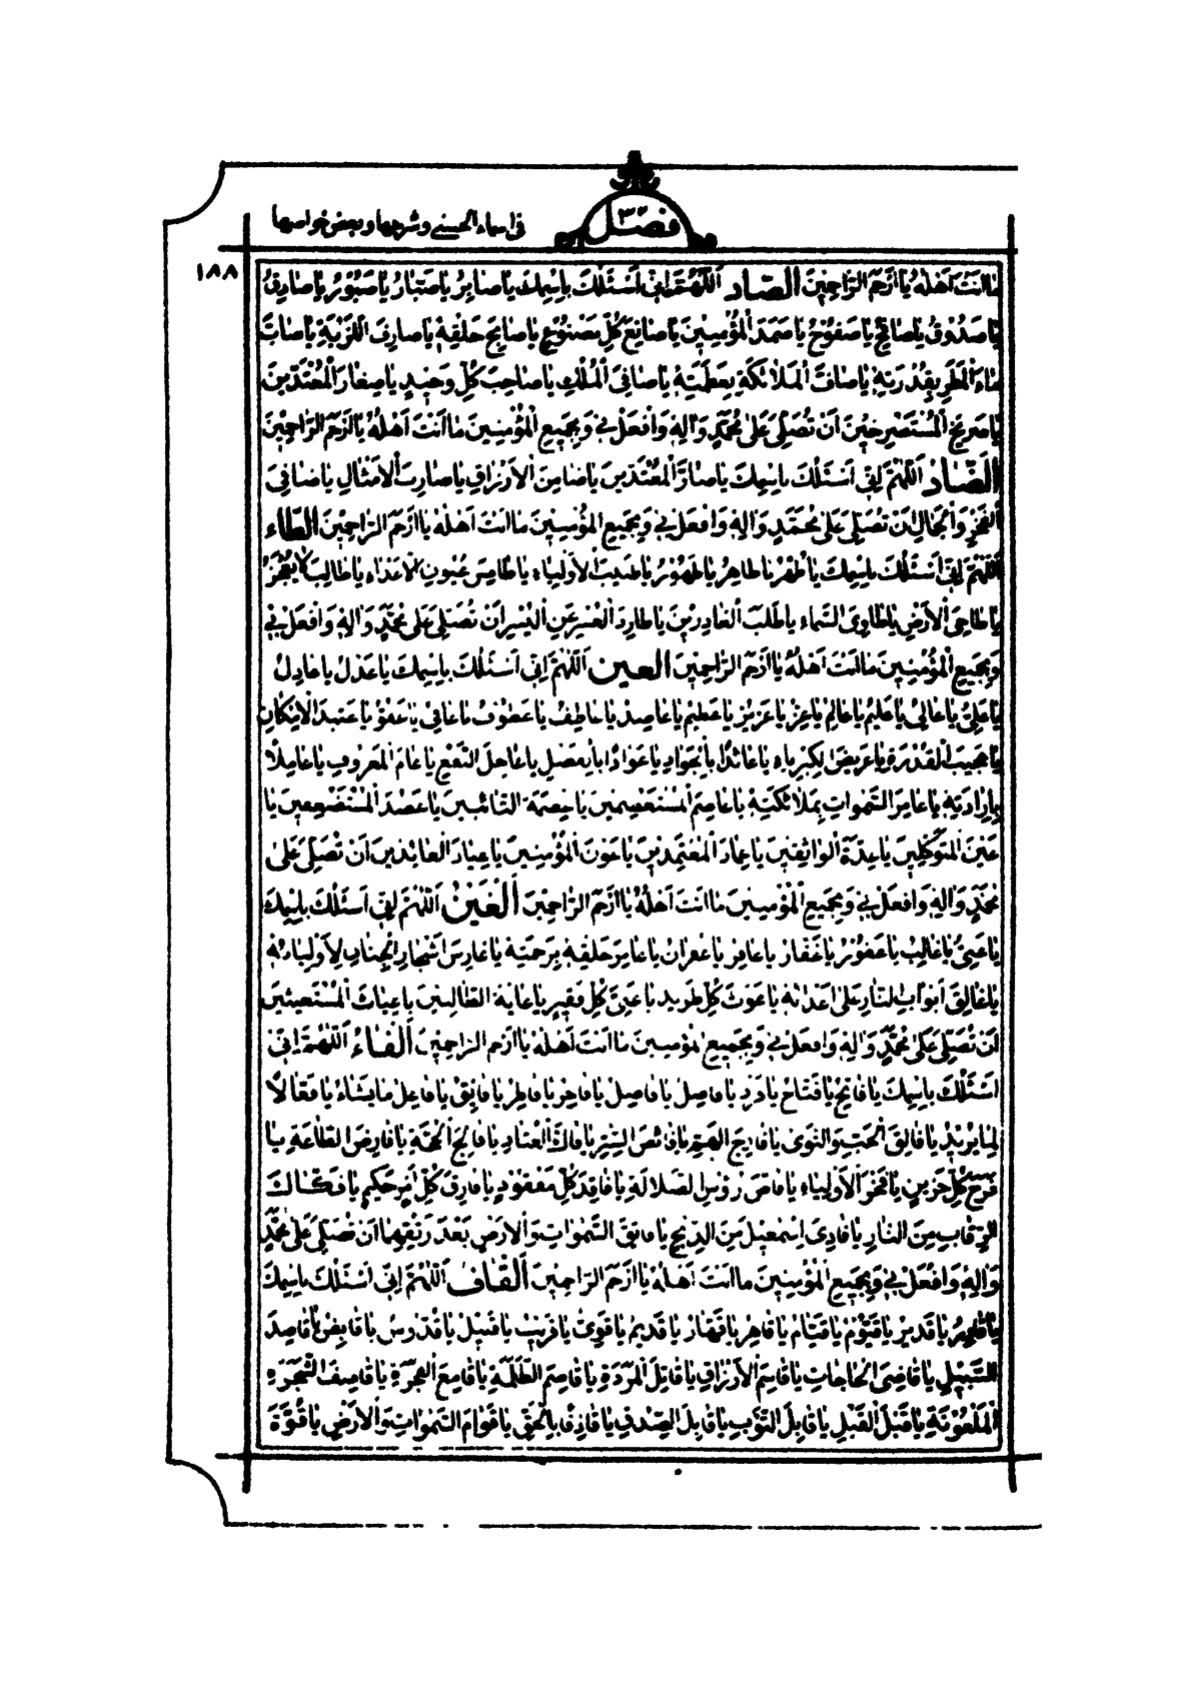 فصل ٣
فى اسماء الحسنى وشرحها وبعض خواصها
١٨٨
ما انت اهله يا ارحم الراحمين الصاد اللهم انى اسئلك باسمك يا صابر يا صبار يا صبور يا صادق
يا صدوق يا صافح يا صفوح يا صمد المؤمنين يا صانع كل مصنوع يا صالح خلقه يا صارف اللزبة يا صاب
ماء المطر بقدرته يا صاف الملائكة بعظمته يا صافى الملك يا صاحب كل وحيد يا صغار المعتدين
يا صريخ المستصرخين ان تصلى على محمد واله وافعل بى وبجميع المؤمنين ما انت اهله يا ارحم الراحمين
الضاد اللهم انى اسئلك باسمك يا ضار المعتدين يا ضامن الارزاق يا ضارب الامثال يا ضافى
الفخر والجمال ان تصلى على محمد واله وافعل بى وبجميع المؤمنين ما انت اهله يا ارحم الراحمين الطاء
اللهم انى اسئلك باسمك يا طهر يا طاهر يا طهور يا طبيب الاولياء يا طامس عيون الاعداء يا طالبا لا يعجز
يا طاحى الارض يا طاوى السماء يا طلب الغادرين يا طارد العسر عن اليسر ان تصلى على محمد واله وافعل بى
وبجميع المؤمنين ما انت اهله يا ارحم الراحمين العين اللهم انى اسئلك باسمك يا عدل يا عادل
يا على يا عالى يا عليم يا عالم يا عز يا عزيز يا عظيم يا عاضد يا عاطف يا عطوف يا عافى يا عفو يا عتيد الامكان
يا عجيب القدرة يا عريض الكبرياء يا عائدا بالجواد يا عوادا بالفضل يا عاجل النفع يا عام المعروف يا عاملا
بارادته يا عامر السموات بملائكته يا عاصم المستعصمين يا عصمة التائبين يا عضد المستضعفين يا
عين المتوكلين يا عدة الواثقين يا عماد المعتمدين يا عون المؤمنين يا عياذ العائذين ان تصلى على
محمد واله وافعل بى وبجميع المؤمنين ما انت اهله يا ارحم الراحمين الغين اللهم انى اسئلك باسمك
يا غنى يا غالب يا غفور يا غفار يا غافر يا غفران يا غامر خلقه برحمته يا غارس اشجار الجنان لاوليائه
يا غالق ابواب النار على اعدائه يا غوث كل طريد يا غنى كل فقير يا غاية الطالبين يا غياث المستغيثين
ان تصلى على محمد واله وافعل بى وبجميع المؤمنين ما انت اهله يا ارحم الراحمين الفاء اللهم انى
اسئلك باسمك يا فاتح يا فتاح يا فرد يا فاصل يا فاضل يا فاخر يا فاطر يا فائق يا فاعل ما يشاء يا فعالا
لما يريد يا فالق الحب والنوى يا فارج الهم يا فائض البر يا فاك العناة يا فالج الحجة يا فارض الطاعة يا
فرح كل حزين يا فخر الاولياء يا فاض رؤس الضلالة يا فاقد كل مفقود يا فارق كل امر حكيم يا فكاك
الرقاب من النار يا فادى اسمعيل من الذبح يا فاتق السموات والارض بعد رتقهما ان تصلى على محمد
واله وافعل بى وبجميع المؤمنين ما انت اهله يا ارحم الراحمين القاف اللهم انى اسئلك باسمك
يا قادر يا قدير يا قيوم يا قيام يا قاهر يا قهار يا قديم يا قوى يا قريب يا قبيل يا قدوس يا قابض يا قاصد
السبيل يا قاضى الحاجات يا قاسم الارزاق يا قاتل المردة يا قاصم الظلمة يا قامع الفجرة يا قاصف الشجرة
الملعونة يا قبل القبل يا قابل التوب يا قابل الصدق يا قاذفا بالحق يا قوام السموات والارض يا قوة